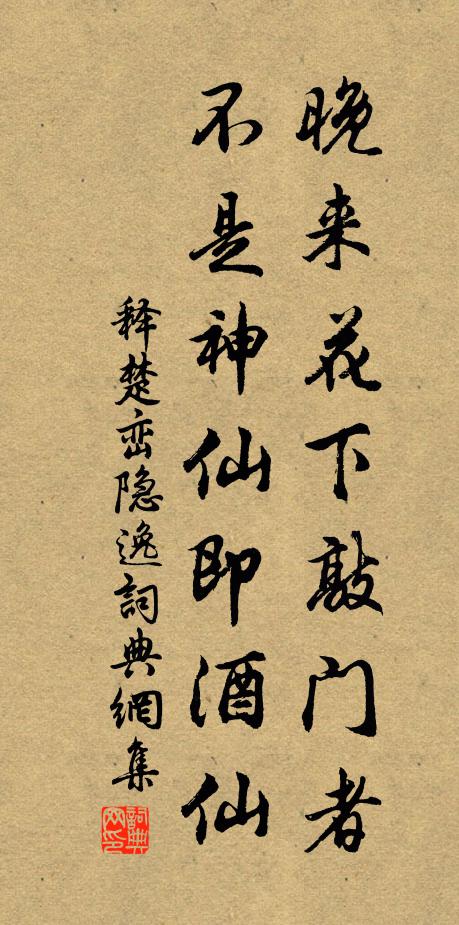 晚来花下敲门者
不是神仙即酒仙
释楚峦隐逸詞典網集
詞典网印